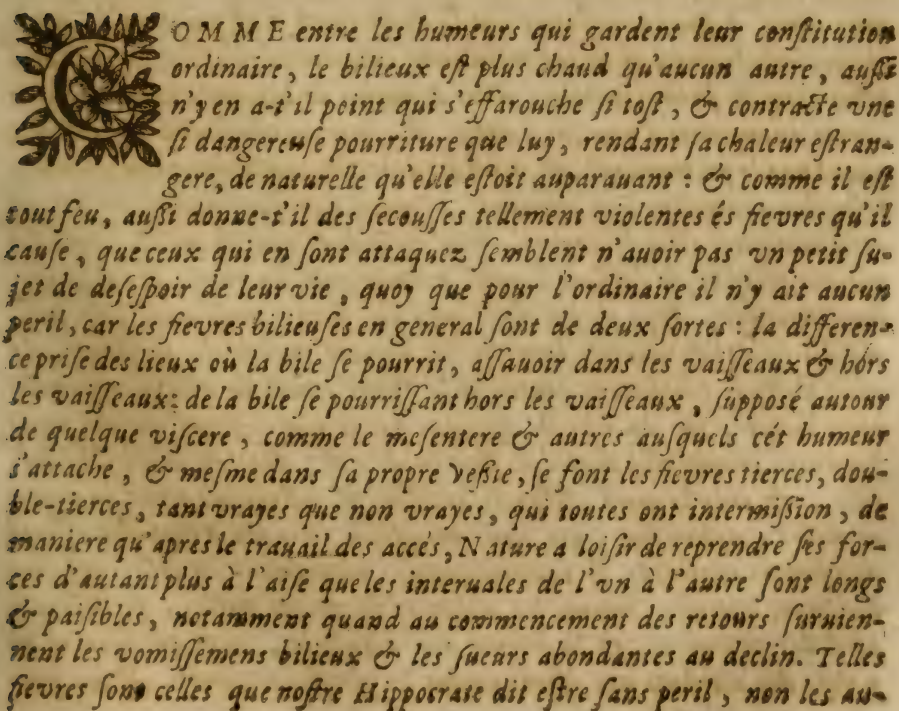 COMME entre les humeurs qui gardent leur conſtitution
ordinaire, le bilieux eſt plus chaud qu'aucun autre, auſſi
n'y en a-t'il point qui s'effarouche ſi toſt, & contracte vne
ſi dangereuſe pourriture que luy, rendant ſa chaleur eſtran-
gere, de naturelle qu'elle eſtoit auparauant : & comme il eſt
tout feu, auſſi donne-t'il des ſecouſſes tellement violentes és fievres qu'il
cauſe, que ceux qui en ſont attaquez ſemblent n'auoir pas vn petit ſu-
jet de deſeſpoir de leur vie, quoy que pour l'ordinaire il n'y ait aucun
peril, car les fievres bilieuſes en general ſont de deux ſortes : la differen-
ce priſe des lieux où la bile ſe pourrit, aſſauoir dans les vaiſſeaux & hors
les vaiſſeaux: de la bile ſe pourriſſant hors les vaiſſeaux, ſuppoſé autour
de quelque viſcere, comme le meſentere & autres auſquels cét humeur
s'attache, & meſme dans ſa propre veſsie, ſe font les fievres tierces, dou-
ble-tierces, tant vrayes que non vrayes, qui toutes ont intermiſsion, de
maniere qu'apres le trauail des accés, Nature a loiſir de reprendre ſes for-
ces d'autant plus à l'aiſe que les interuales de l'vn à l'autre ſont longs
& paiſibles, notamment quand au commencement des retours ſuruien-
nent les vomiſſemens bilieux & les ſueurs abondantes au declin. Telles
fievres ſont celles que noſtre Hippocrate dit eſtre ſans peril, non les au-